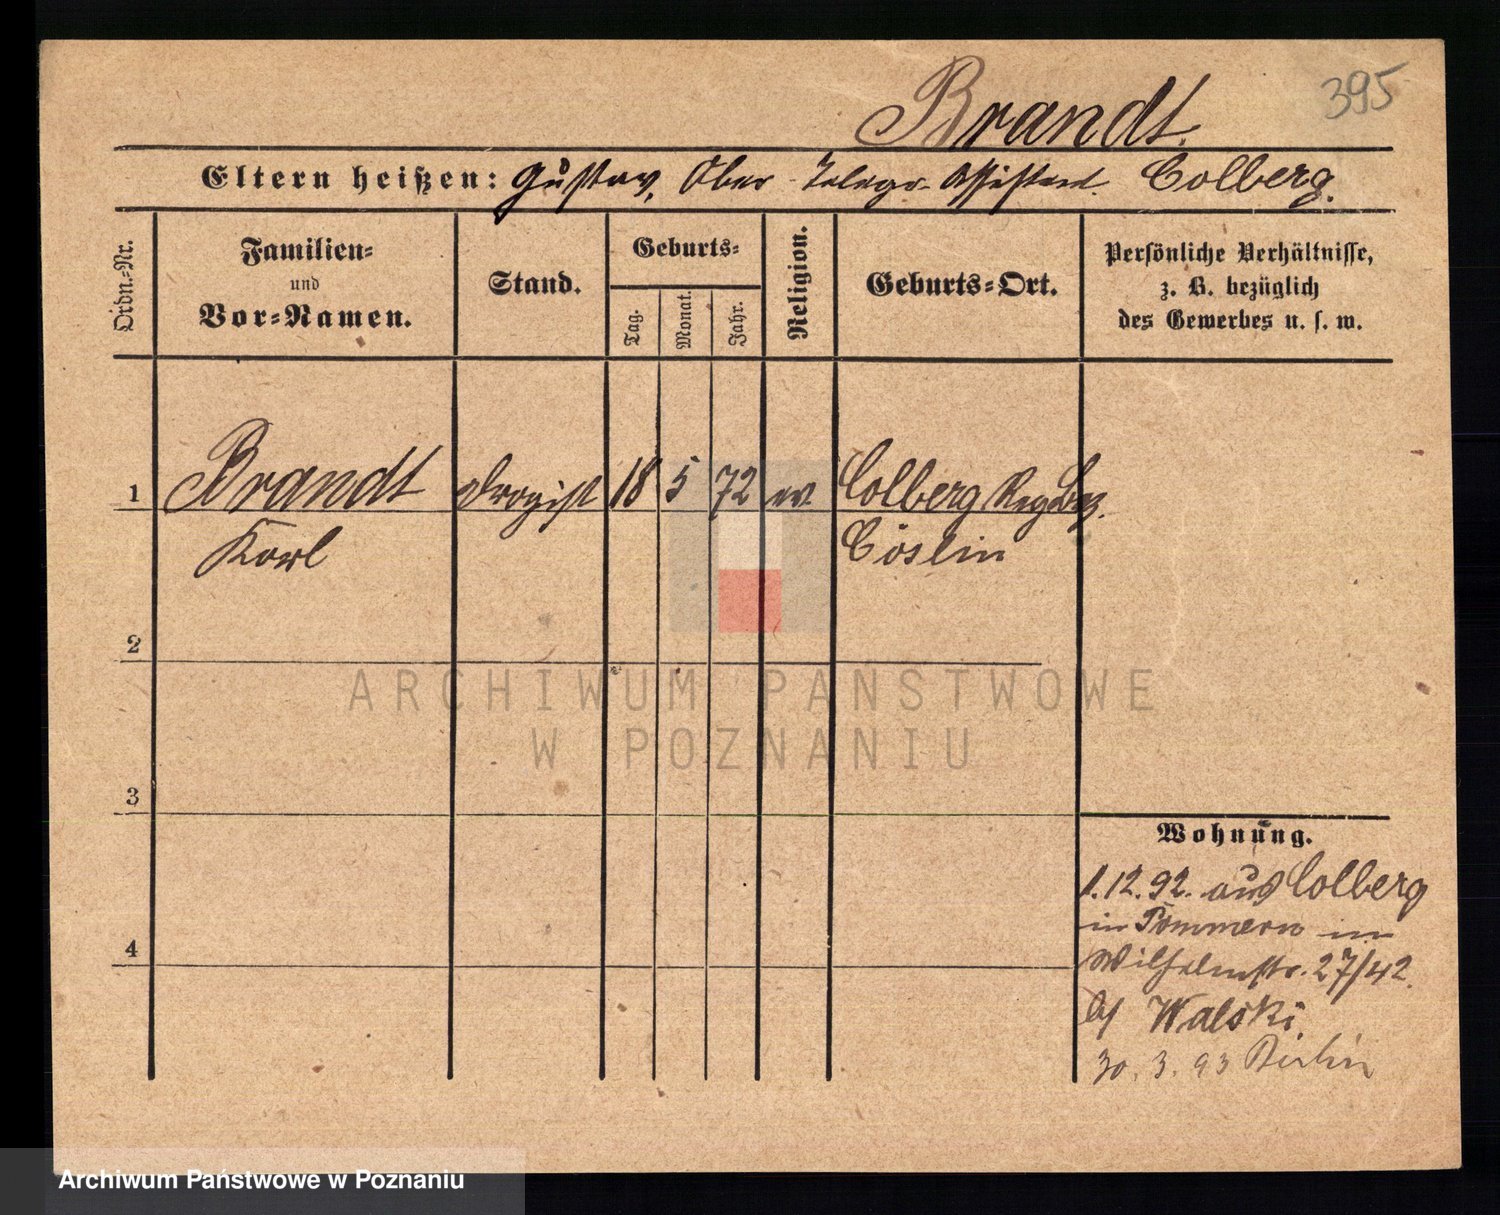 395
Brandt.
Eltern heißen: Gustav, Ober-Telegr-Assistent. Colberg.
Ordn.-Nr.
Familien-
und
Vor-Namen.
Stand.
Geburts-
Tag.
Monat.
Jahr.
Religion.
Geburts-Ort.
Persönliche Verhältnisse,
z. B. bezüglich
des Gewerbes u. s. w.
1 Brandt Drogist 18 5 72 ev Colberg Reg Bez.
Karl Cöslin
2
ARCHIWUM PAŃSTWOWE
W POZNANIU
3
Wohnung.
1.12.92. aus Colberg
in Pommern in
4
Wilhelmstr. 27/42.
b/ Walski.
30. 3. 93 Berlin
Archiwum Państwowe w Poznaniu